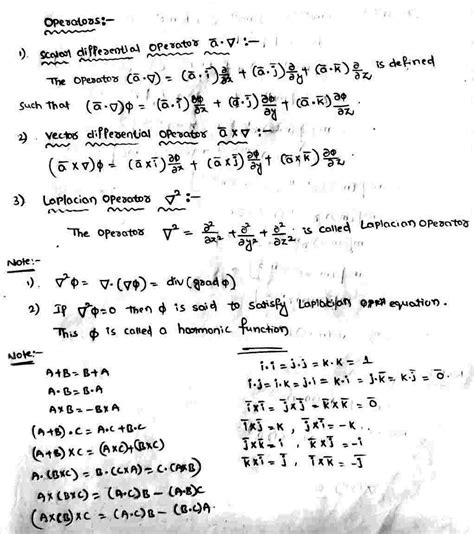 Operators:-
1). Scalar differential operator ā·∇ :-
The operator (ā·∇) = (ā·ī) ∂/∂x + (ā·j̄) ∂/∂y + (ā·k̄) ∂/∂z is defined
such that (ā·∇)φ = (ā·ī) ∂φ/∂x + (ā·j̄) ∂φ/∂y + (ā·k̄) ∂φ/∂z.
2) vector differential operator ā×∇ :-
(ā×∇)φ = (ā×ī) ∂φ/∂x + (ā×j̄) ∂φ/∂y + (ā×k̄) ∂φ/∂z.
3) Laplacian operator ∇² :-
The operator ∇² = ∂²/∂x² + ∂²/∂y² + ∂²/∂z² is called Laplacian operator
Note:-
1). ∇²φ = ∇·(∇φ) = div(gradφ)
2) If ∇²φ=0 then φ is said to satisfy Laplacian equation.
This φ is called a harmonic function
Note:-
A+B = B+A
A·B = B·A
A×B = -B×A
(A+B)·C = A·C+B·C
(A+B)×C = (A×C)+(B×C)
A·(B×C) = B·(C×A) = C·(A×B)
A×(B×C) = (A·C)B - (A·B)C
(A×B)×C = (A·C)B - (B·C)A
i·i = j·j = k·k = 1
i·j = i·k = j·i = k·i = j·k̄ = k·j̄ = 0̄.
ī×ī = j̄×j̄ = k̄×k̄ = 0̄,
ī×j̄ = k , j̄×ī = -k.
j̄×k̄ = i , k̄×j̄ = -i
k̄×ī = j̄ , ī×k̄ = -j̄